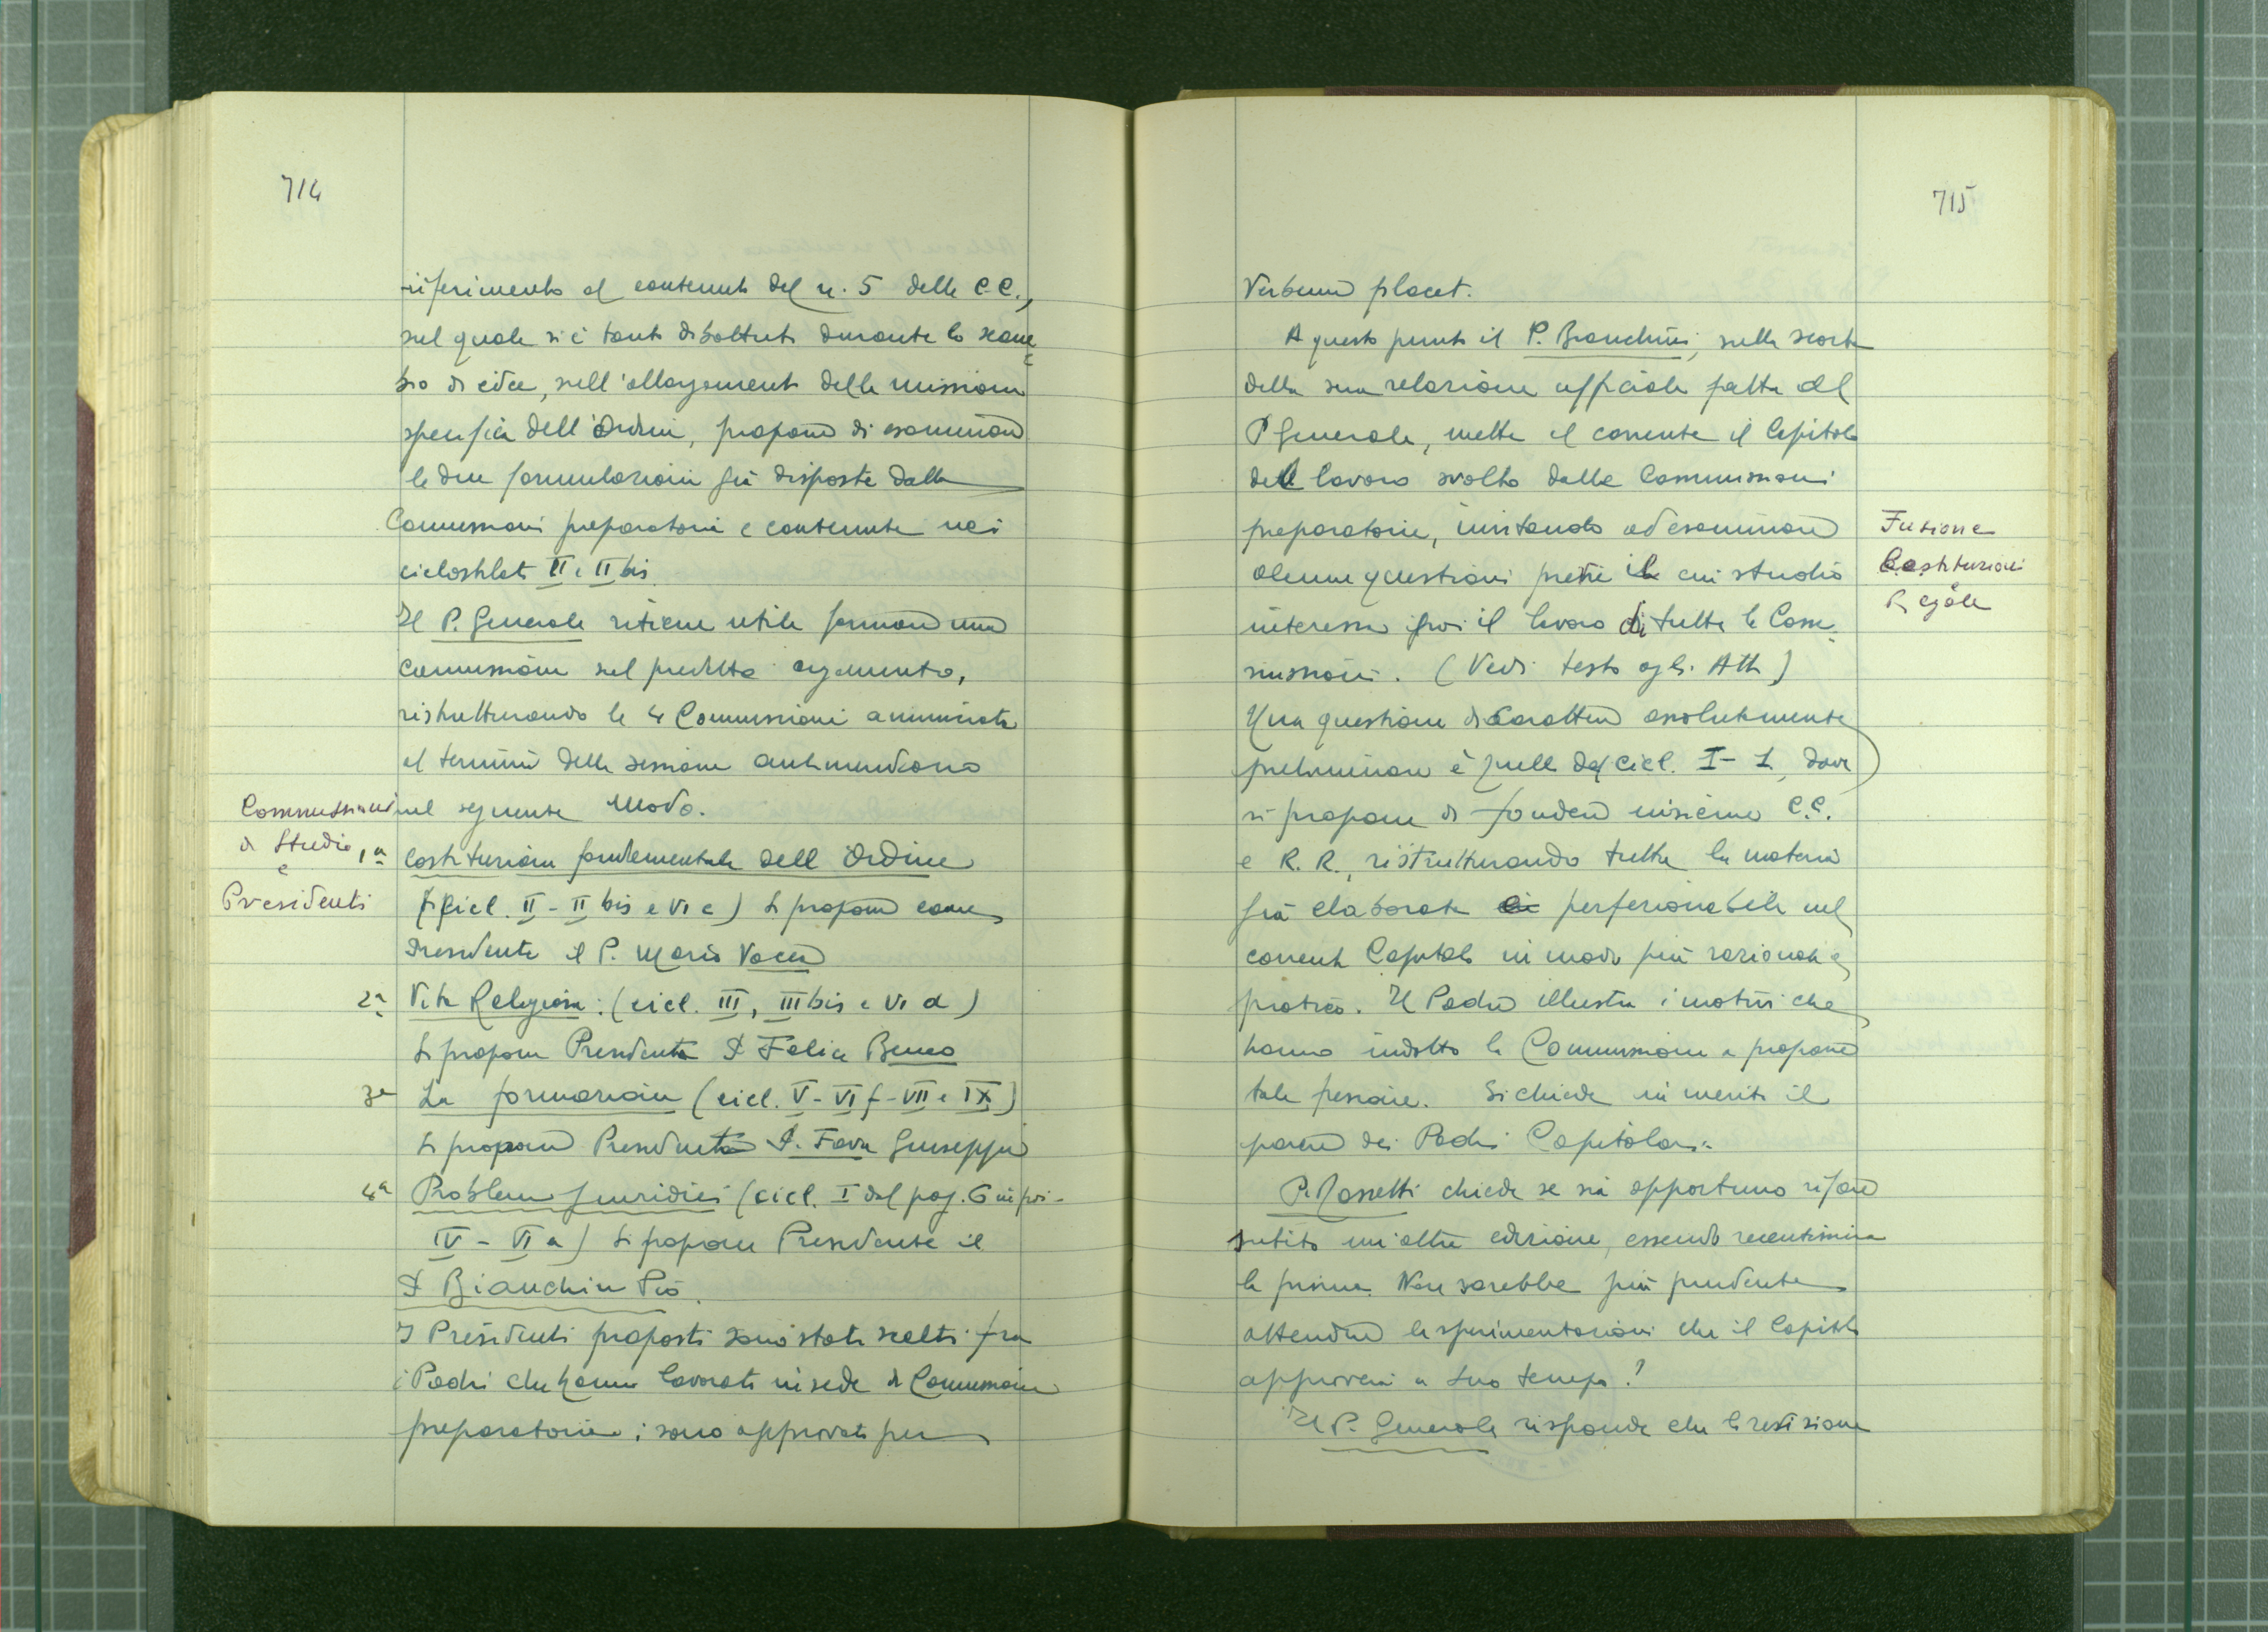 714
riferimento al contenuto del n. 5 delle C.C.,
sul quale si è tanto dibattuto durante lo scam=
bio di idee, sull'allargamento della missione
specifica dell'Ordine, propone di esaminare
le due formulazioni già disposte dalla
Commissioni preparatorie e contenute nei
ciclostilati II e II bis.
Il P. Generale ritiene utile formare una
commissione sul predetto argomento,
ristrutturando le 4 Commissioni annunciate
al termine della sessione antimeridiana
nel seguente modo.
Commissioni
di Studio
e
Presidenti
1a Costituzione fondamentale dell'Ordine
(cicl. II - II bis e VI c) Si propone come
Presidente il P. Mario Vacca
2a Vita Religiosa: (cicl. III, III bis e VI d)
Si propone Presidente P. Felice Beneo
3a La formazione (cicl. V - VI f - VII e IX)
Si propone Presidente P. Fava Giuseppe
4a Problemi giuridici (cicl. I dal pag. 6 in poi -
IV - VI a) Si propone Presidente il
P. Bianchini Pio.
I Presidenti proposti sono stati scelti fra
i Padri che hanno lavorato in sede di Commissione
preparatoria; sono approvati per
715
Verbum placet.
A questo punto il P. Bianchini, sulla scorta
della sua relazione ufficiale fatta al
P. Generale, mette al corrente il Capitolo
del lavoro svolto dalle Commissioni
preparatorie, invitando ad esaminare
alcune questioni previe il cui studio
interessa poi il lavoro di tutte le Com=
missioni. (Vedi testo agli Atti)
Fusione
Costituzioni
e
Regole
Una questione di carattere assolutamente
preliminare è quella del cicl. I - 1, dove
si propone di fondere insieme C.C.
e R.R., ristrutturando tutta la materia
già elaborata e perfezionabile nel
corrente Capitolo in modo più razionale e
pratico. Il Padre illustra i motivi che
hanno indotto la Commissione a proporre
tale fusione. Si chiede in merito il
parere dei Padri Capitolari.
P. Rossetti chiede se sia opportuno rifare
subito un'altra edizione, essendo recentissima
la prima. Non sarebbe più prudente
attendere le sperimentazioni che il Capitolo
approverà a suo tempo?
Il P. Generale risponde che la revisione